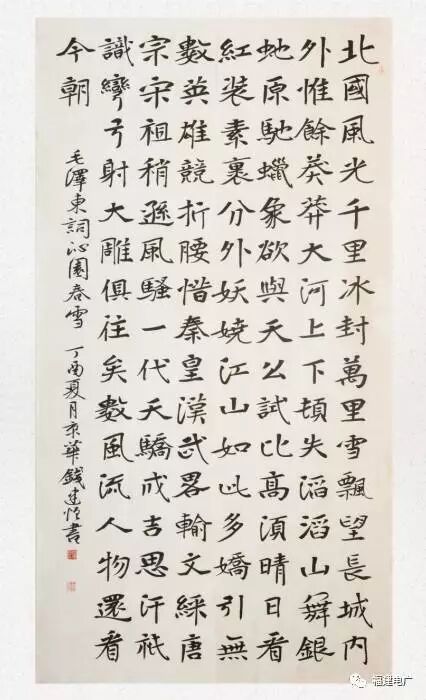 北國風光千里冰封萬里雪飄望長城內
外惟餘莽莽大河上下頓失滔滔山舞銀
虵原馳蠟象欲與天公試比高須晴日看
紅裝素裹分外妖嬈江山如此多嬌引無
數英雄競折腰惜秦皇漢武畧輸文綵唐
宗宋祖稍遜風騷一代天驕成吉思汗祇
識彎弓射大雕俱往矣數風流人物還看
今朝
毛澤東詞沁園春雪 丁酉夏月京華錢建書
福建电广